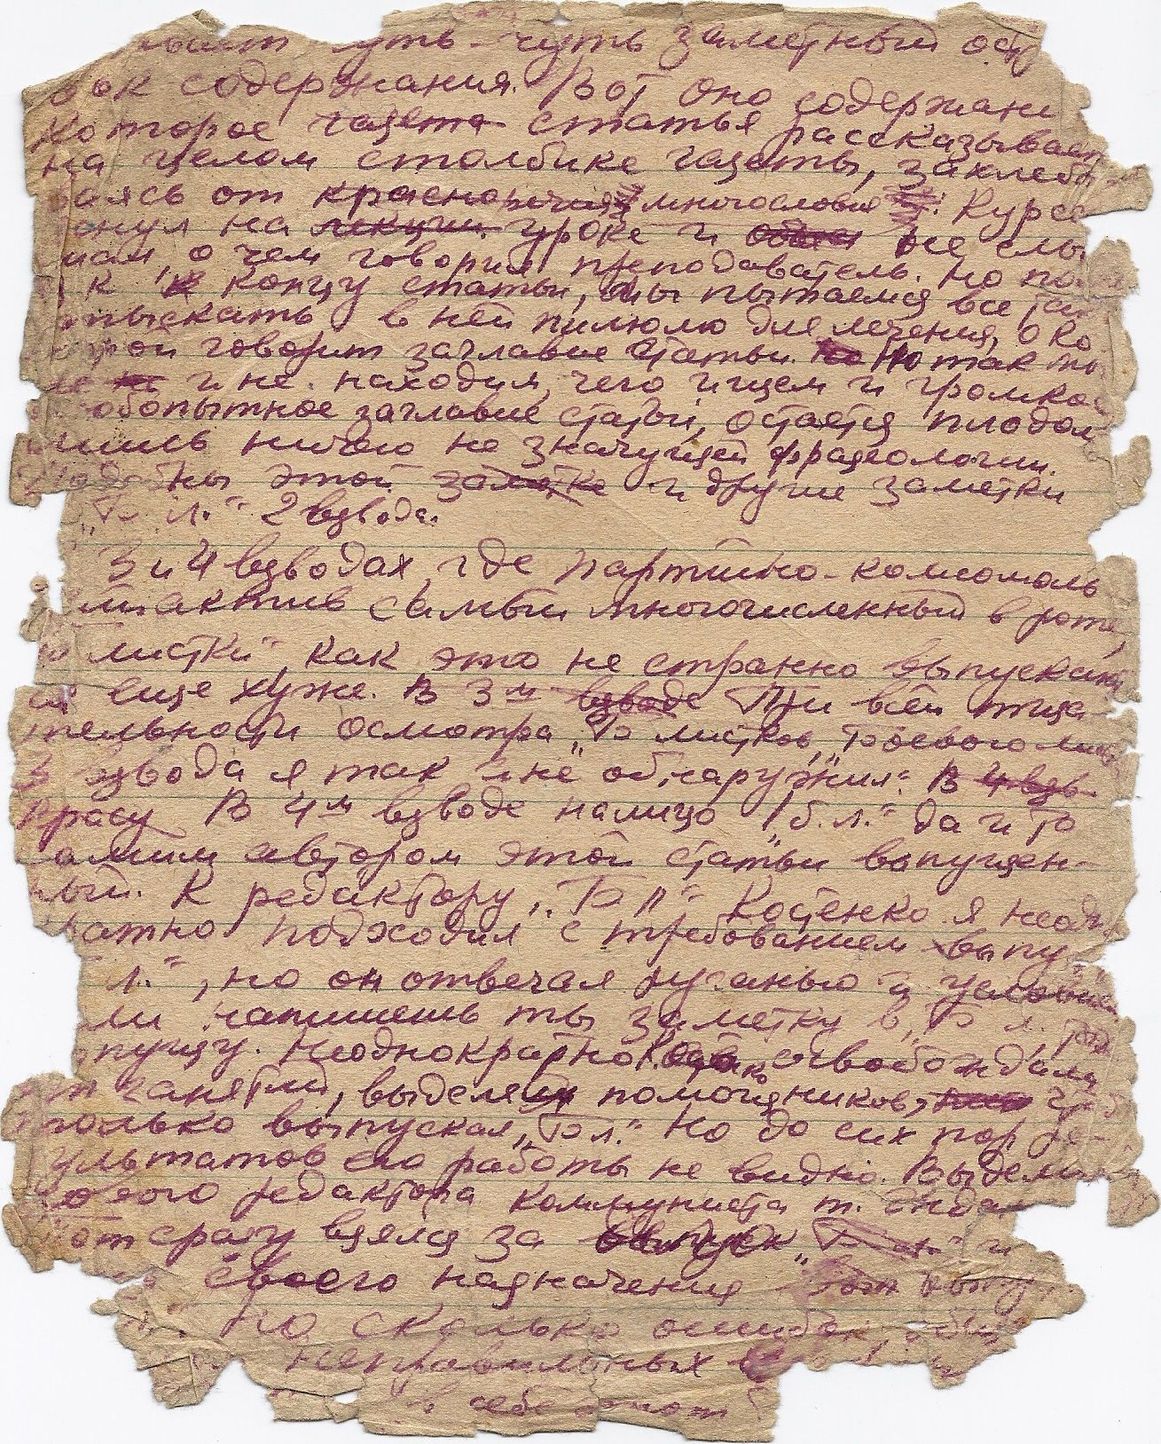 чуть-чуть заметный
содержания. Вот оно содержани
которое газета статья рассказывае
на целом столбике газеты, захлебы
ваясь от красноречия многословия. Курса
нул на лекции уроке и не слы
шал, о чем говорил преподаватель. Но
к концу статьи, мы пытаемся все так
отыскать в ней пилюлю для лечения, о ко
торой говорит заглавие статьи. Но так
и не находим, чего ищем и громкое
любопытное заглавие статьи, остается плодом
лишь ничего не значущей фразеологии.
Подобны этой заметке и другие заметки
„Б. л." 2 взвода.
3 и 4 взводах, где партийно-комсомоль
актив самый многочисленный в роте,
листки", как это не странно выпускают
ся еще хуже. В 3м взводе При всей тща-
тельности осмотра „Б листков", „Боевого лист
3 взвода я так и не обнаружил". В 4 взв-
В 4м взводе налицо 1 „б.л." да и то
самим автором этой статьи выпущен-
ный. К редактору „Б л" Костенко я неодн
ратно подходил с требованием выпу
л.", но он отвечал руганью и
ли напишешь ты заметку в „Б л.
пущу. Неоднократно освобождали
от занятий, выделяли помощников,
только выпускал „Б л." Но до сих пор ре-
зультатов его работы не видно. Выдели
нового редактора коммуниста т.
сразу взялся за выпуск „Б л." и
своего назначения
но сколько ошибок,
неправильных
в себе этот